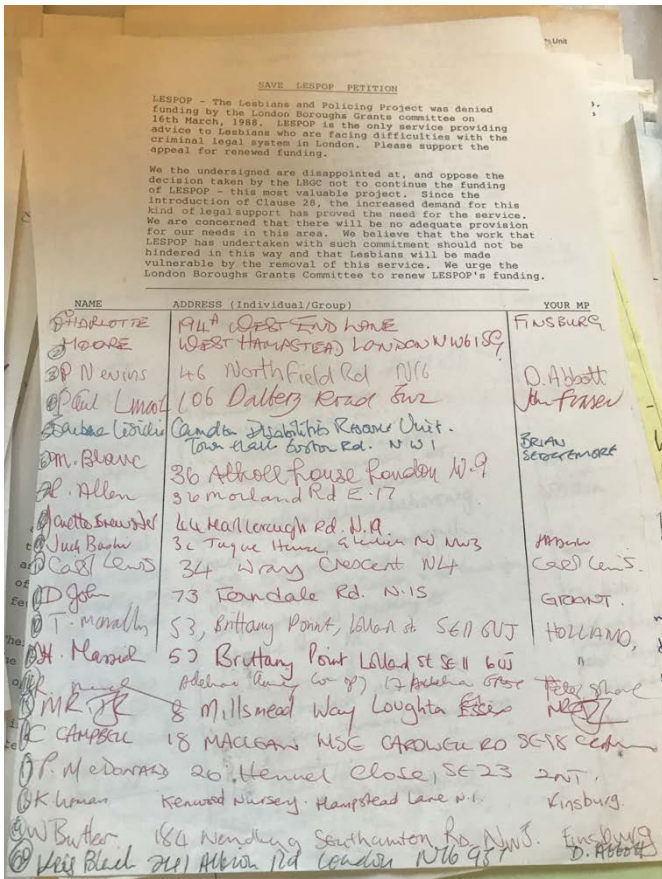 SAVE LESPOP PETITION
LESPOP - The Lesbians and Policing Project was denied
funding by the London Boroughs Grants committee on
16th March, 1988. LESPOP is the only service providing
advice to Lesbians who are facing difficulties with the
criminal legal system in London. Please support the
appeal for renewed funding.
We the undersigned are disappointed at, and oppose the
decision taken by the LBGC not to continue the funding
of LESPOP - this most valuable project. Since the
introduction of Clause 28, the increased demand for this
kind of legal support has proved the need for the service.
We are concerned that there will be no adequate provision
for our needs in this area. We believe that the work that
LESPOP has undertaken with such commitment should not be
hindered in this way and that Lesbians will be made
vulnerable by the removal of this service. We urge the
London Boroughs Grants Committee to renew LESPOP's funding.
NAME ADDRESS (Individual/Group) YOUR MP
CHARLOTTE 194A WEST END LANE FINSBURG
MOORE WEST HAMPSTEAD LONDON NW6 1SG
P Nevins 46 Northfield Rd N16 D. Abbott
Paul 106 Road SW2 John Fraser
Camden Disabilities Resource Unit.
Town Hall Euston Rd. NW1 BRIAN
SEDGEMORE
M. Blanc 36 Atholl house London W.9
R. Allen 36 Morland Rd E.17
44 Marlborough Rd. N.19
Judy 3c House, NW3
Carl Lewis 34 Wray Crescent N4 Carl Lewis.
D John 73 Ferndale Rd. N.15 GRANT.
T. 53, Brittany Point, Lollard st SE11 6UJ HOLLAND,
H. 53 Brittany Point Lollard st SE11 6UJ "
17 Peter Shore
MR 8 Millsmead Way Loughton Essex
C CAMPBELL 18 MACLEAN HSE CARDWELL RD SE18
P. McDonald 20 Hennel Close, SE23 2NT.
K. Kenwood Nursery. Hampstead Lane N.1. Kinsburg.
W Butler. 184 Wendling Southamton Rd. NW5. Finsburg
Black 241 Albion Rd London N16 9 D. Abbott